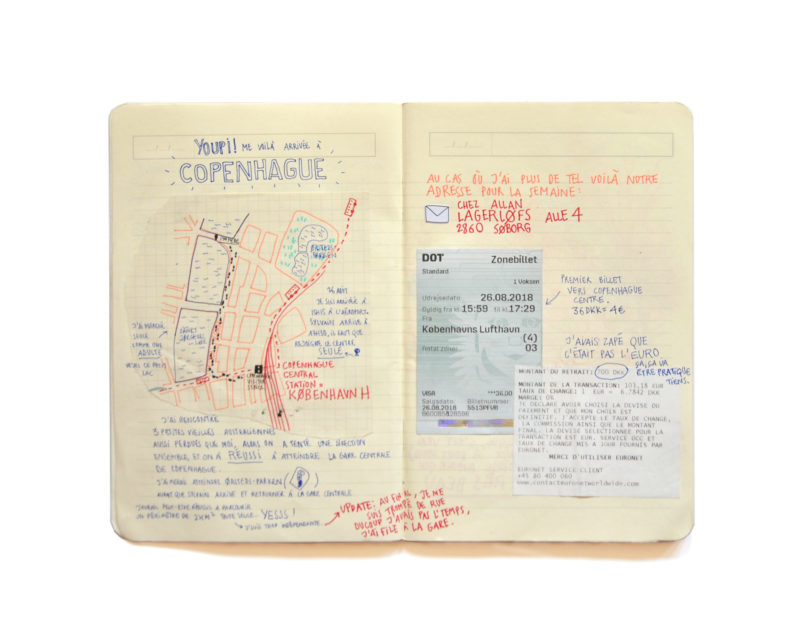 YOUPI! ME VOILÀ ARRIVÉE À
COPENHAGUE
J'AI MARCHÉ
SEULE
COMME UNE
ADULTE
LAC
SEULE
COPENHAGUE
CENTRAL
STATION =
KØBENHAVN H
J'AI RENCONTRÉ
3 PETITES VIEILLES AUSTRALIENNES
AUSSI PERDUES QUE MOI, ALORS ON A TENTÉ UNE DIRECTION
ENSEMBLE, ET ON A RÉUSSI À ATTEINDRE LA GARE CENTRALE
DE COPENHAGUE.
AVANT QUE SYLVAIN ARRIVE ET RETOURNER À LA GARE CENTRALE
UN PÉRIMÈTRE DE 2KM² TOUTE SEULE. YESSS!
J'SUIS TROP INDÉPENDANTE.
UPDATE: AU FINAL, JE ME
SUIS TROMPÉ DE RUE
DU COUP J'AVAIS PAS L'TEMPS,
J'AI FILÉ À LA GARE.
AU CAS OÙ J'AI PLUS DE TEL VOILÀ NOTRE
ADRESSE POUR LA SEMAINE:
CHEZ ALLAN
LAGERLØFS ALLE 4
2860 SØBORG
DOT Zonebillet
Standard
1 Voksen
Udrejsedato 26.08.2018
Gyldig fra kl 15:59 til kl 17:29
Fra
Københavns Lufthavn
(4)
Antal zoner 03
VISA ***36,00
Salgsdato Billetnummer
26.08.2018 5513PFVB
860085828596
PREMIER BILLET
VERS COPENHAGUE
CENTRE.
36DKK = 4€
J'AVAIS ZAPÉ QUE
C'ÉTAIT PAS L'EURO
ÇA, ÇA VA
ÊTRE PRATIQUE
TIENS.
MONTANT DU RETRAIT: 700 DKK
MONTANT DE LA TRANSACTION: 103.18 EUR
TAUX DE CHANGE: 1 EUR = 6.7842 DKK
MARGE: 0%
JE DECLARE AVOIR CHOISI LA DEVISE DU
PAIEMENT ET QUE MON CHOIX EST
DEFINITIF. J'ACCEPTE LE TAUX DE CHANGE,
LA COMMISSION AINSI QUE LE MONTANT
FINAL. LA DEVISE SELECTIONNEE POUR LA
TRANSACTION EST EUR. SERVICE DCC ET
TAUX DE CHANGE MIS A JOUR FOURNIS PAR
EURONET.
MERCI D'UTILISER EURONET
EURONET SERVICE CLIENT
+45 80 400 060
www.contacteuronetworldwide.com